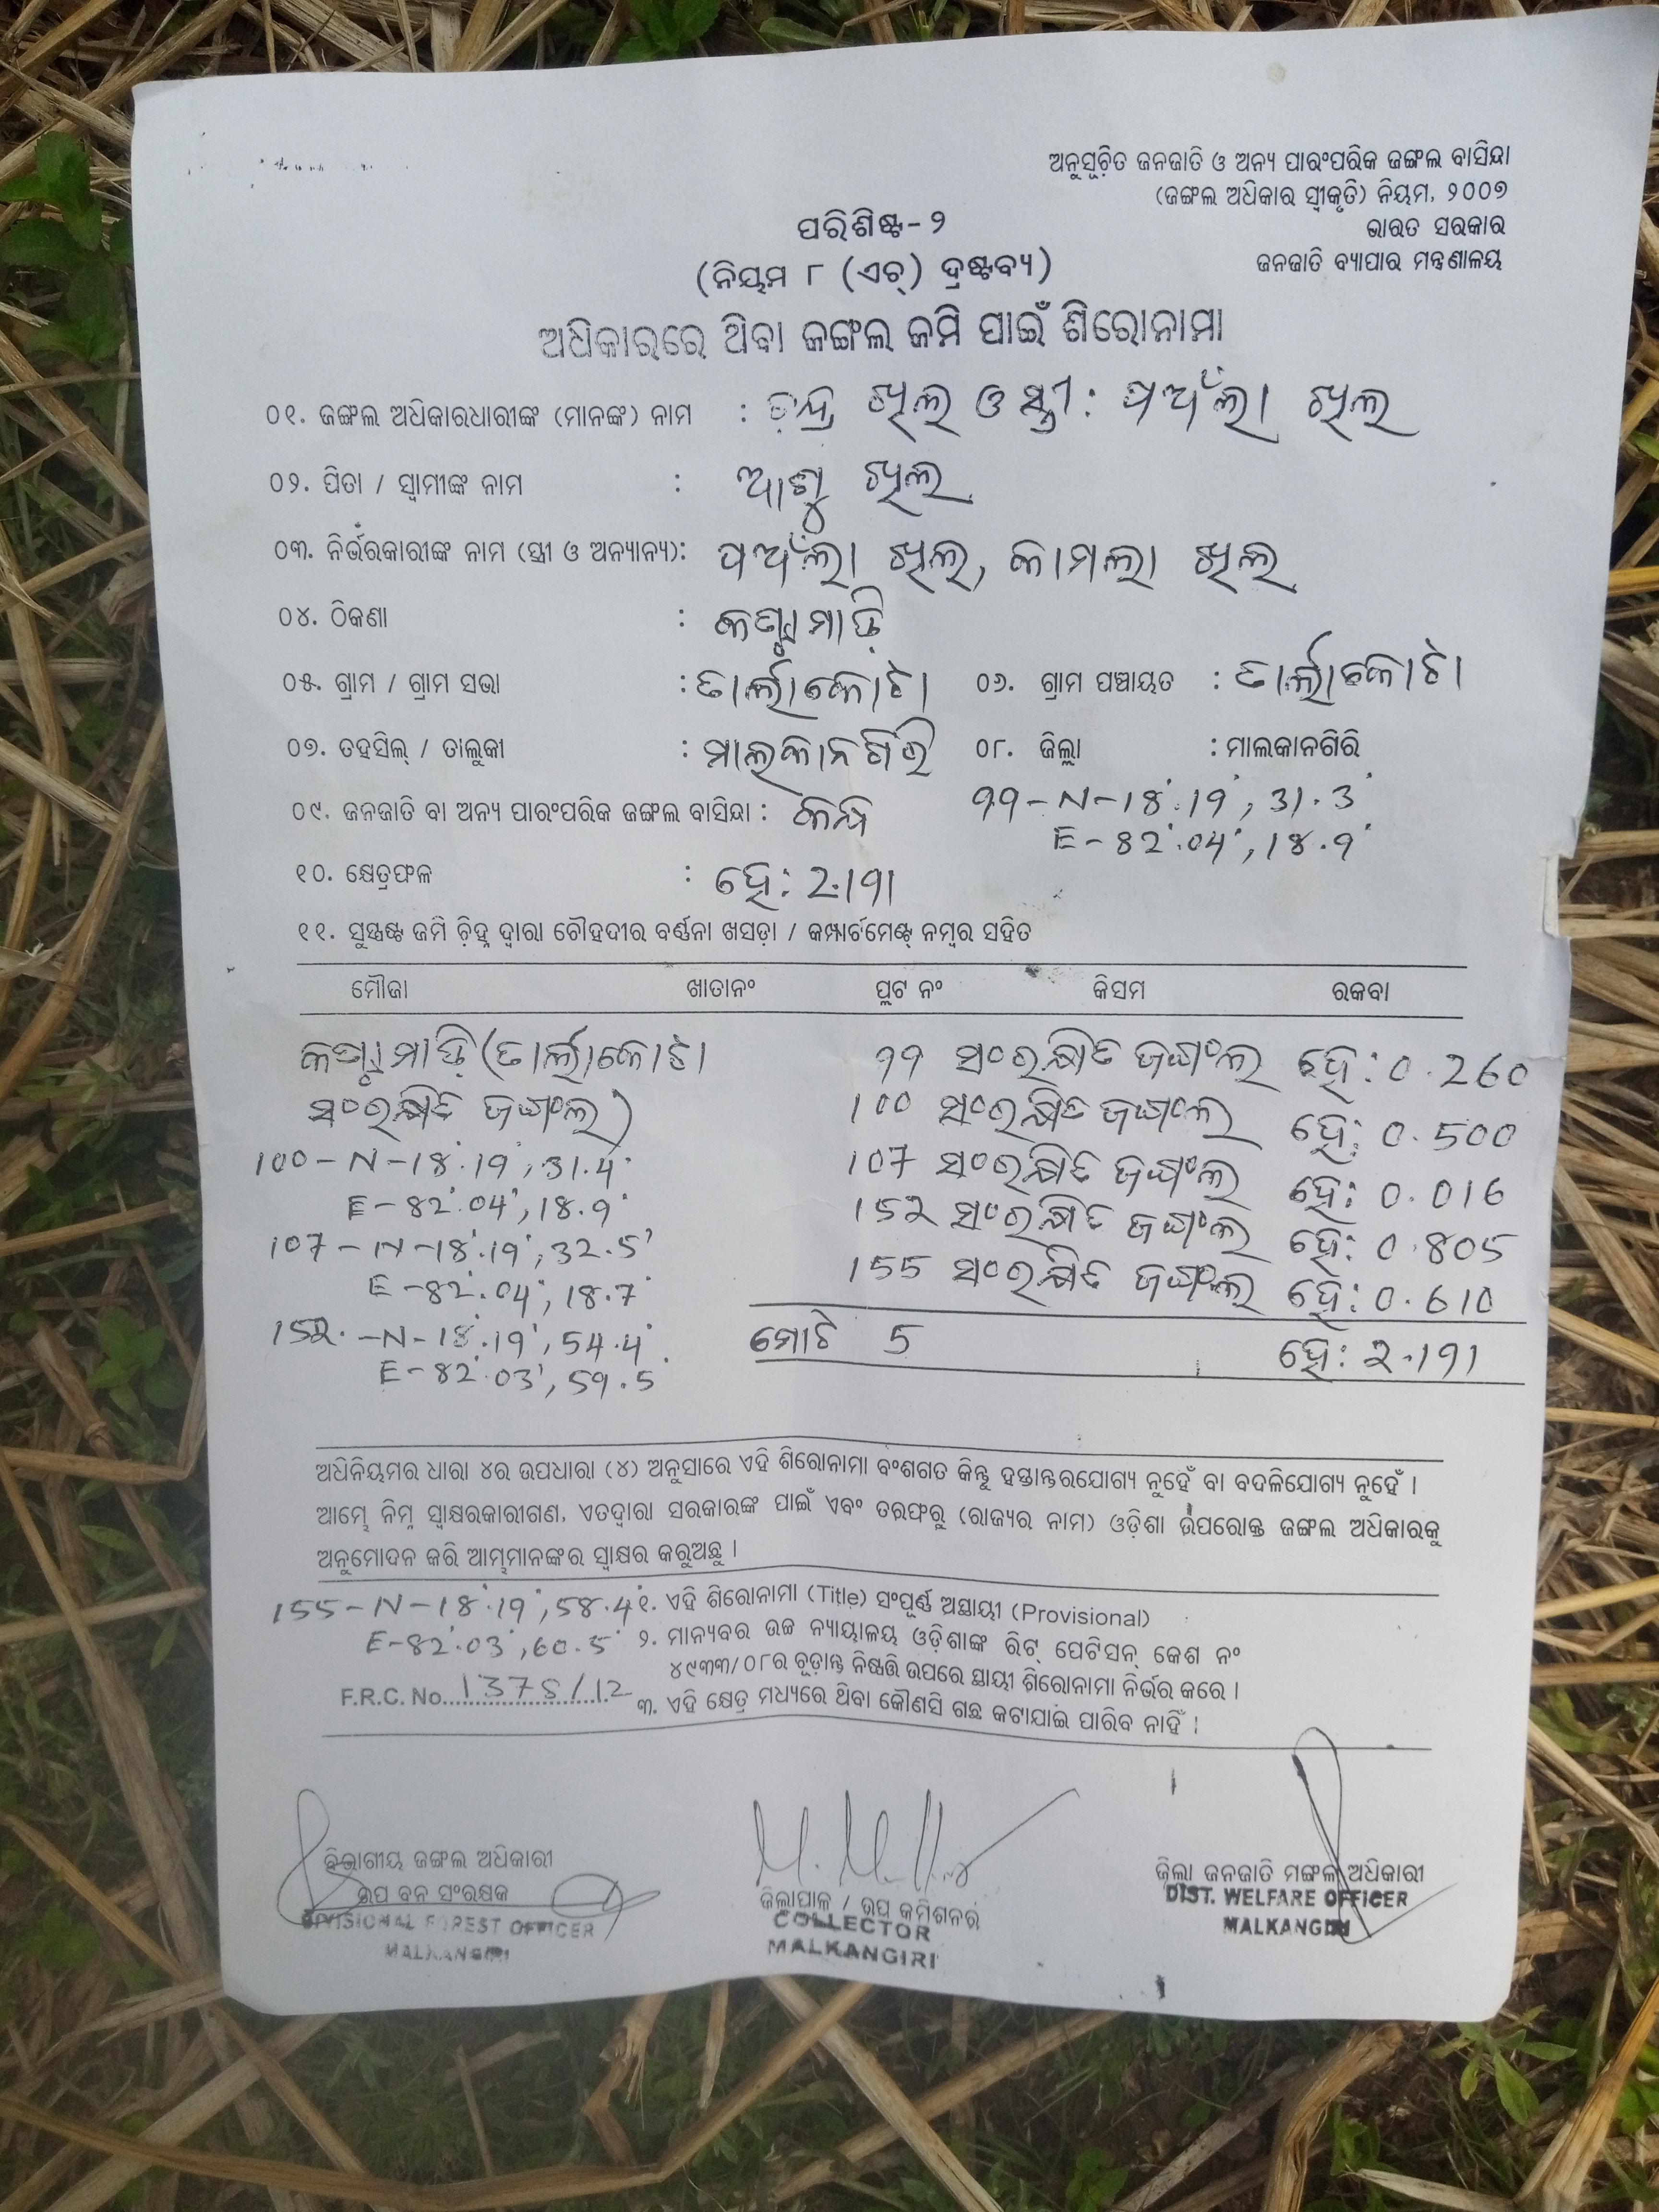 ଅନୁସୂଚିତ ଜନଜାତି ଓ ଅନ୍ୟ ପାରଂପରିକ ଜଙ୍ଗଲ ବାସିନ୍ଦା
(ଜଙ୍ଗଲ ଅଧିକାର ସ୍ୱୀକୃତି) ନିୟମ, ୨୦୦୭
ଭାରତ ସରକାର
ଜନଜାତି ବ୍ୟାପାର ମନ୍ତ୍ରଣାଳୟ
ପରିଶିଷ୍ଟ-୨
(ନିୟମ ୮ (ଏଚ୍) ଦ୍ରଷ୍ଟବ୍ୟ)
ଅଧିକାରରେ ଥିବା ଜଙ୍ଗଲ ଜମି ପାଇଁ ଶିରୋନାମା
୦୧. ଜଙ୍ଗଲ ଅଧିକାରଧାରୀଙ୍କ (ମାନଙ୍କ) ନାମ : ଚନ୍ଦ୍ର ଖିଲ ଓ ସ୍ତ୍ରୀ: ଖିଲ
୦୨. ପିତା / ସ୍ୱାମୀଙ୍କ ନାମ : ଖିଲ
୦୩. ନିର୍ଭରକାରୀଙ୍କ ନାମ (ସ୍ତ୍ରୀ ଓ ଅନ୍ୟାନ୍ୟ): ଖିଲ, କାମଲା ଖିଲ
୦୪. ଠିକଣା :
୦୫. ଗ୍ରାମ / ଗ୍ରାମ ସଭା : ତାର୍ଲାକୋଟା ୦୬. ଗ୍ରାମ ପଞ୍ଚାୟତ : ତାର୍ଲାକୋଟା
୦୭. ତହସିଲ୍ / ତାଲୁକା : ମାଲକାନଗିରି ୦୮. ଜିଲ୍ଲା : ମାଲକାନଗିରି
99-N-18°.19', 31.3"
୦୯. ଜନଜାତି ବା ଅନ୍ୟ ପାରଂପରିକ ଜଙ୍ଗଲ ବାସିନ୍ଦା :
E-82°.04', 18.9"
୧୦. କ୍ଷେତ୍ରଫଳ : ହେ: 2.191
୧୧. ସୁସ୍ପଷ୍ଟ ଜମି ଚିହ୍ନ ଦ୍ୱାରା ଚୌହଦୀର ବର୍ଣ୍ଣନା ଖସଡ଼ା / କମ୍ପାର୍ଟମେଣ୍ଟ୍ ନମ୍ବର ସହିତ
ମୌଜା ଖାତାନଂ ପ୍ଲଟ ନଂ କିସମ ରକବା
(ତାର୍ଲାକୋଟା 99 ସଂରକ୍ଷିତ ଜଙ୍ଗଲ ହେ: 0.260
ସଂରକ୍ଷିତ ଜଙ୍ଗଲ) 100 ସଂରକ୍ଷିତ ଜଙ୍ଗଲ ହେ: 0.500
100-N-18°.19', 31.4" 107 ସଂରକ୍ଷିତ ଜଙ୍ଗଲ ହେ: 0.016
E-82°.04', 18.9" 152 ସଂରକ୍ଷିତ ଜଙ୍ଗଲ ହେ: 0.805
107-N-18°.19', 32.5" 155 ସଂରକ୍ଷିତ ଜଙ୍ଗଲ ହେ: 0.610
E-82°.04', 18.7"
152.-N-18°.19', 54.4" ମୋଟ 5 ହେ: 2.191
E-82°.03', 59.5"
ଅଧିନିୟମର ଧାରା ୪ର ଉପଧାରା (୪) ଅନୁସାରେ ଏହି ଶିରୋନାମା ବଂଶଗତ କିନ୍ତୁ ହସ୍ତାନ୍ତରଯୋଗ୍ୟ ନୁହେଁ ବା ବଦଳିଯୋଗ୍ୟ ନୁହେଁ ।
ଆମ୍ଭେ ନିମ୍ନ ସ୍ୱାକ୍ଷରକାରୀଗଣ, ଏତଦ୍ଦ୍ୱାରା ସରକାରଙ୍କ ପାଇଁ ଏବଂ ତରଫରୁ (ରାଜ୍ୟର ନାମ) ଓଡ଼ିଶା ଉପରୋକ୍ତ ଜଙ୍ଗଲ ଅଧିକାରକୁ
ଅନୁମୋଦନ କରି ଆମ୍ଭମାନଙ୍କର ସ୍ୱାକ୍ଷର କରୁଅଛୁ ।
155-N-18°.19', 58.4" ୧. ଏହି ଶିରୋନାମା (Title) ସଂପୂର୍ଣ୍ଣ ଅସ୍ଥାୟୀ (Provisional)
E-82°.03', 60.5" ୨. ମାନ୍ୟବର ଉଚ୍ଚ ନ୍ୟାୟାଳୟ ଓଡ଼ିଶାଙ୍କ ରିଟ୍ ପେଟିସନ୍ କେଶ ନଂ
୪୯୩୩/୦୮ର ଚୂଡ଼ାନ୍ତ ନିଷ୍ପତ୍ତି ଉପରେ ସ୍ଥାୟୀ ଶିରୋନାମା ନିର୍ଭର କରେ ।
F.R.C. No. 1375/12 ୩. ଏହି କ୍ଷେତ୍ର ମଧ୍ୟରେ ଥିବା କୌଣସି ଗଛ କଟାଯାଇ ପାରିବ ନାହିଁ ।
ବିଭାଗୀୟ ଜଙ୍ଗଲ ଅଧିକାରୀ
ଉପ ବନ ସଂରକ୍ଷକ
DIVISIONAL FOREST OFFICER
MALKANGIRI
ଜିଲ୍ଲାପାଳ / ଉପ କମିଶନର
COLLECTOR
MALKANGIRI
ଜିଲ୍ଲା ଜନଜାତି ମଙ୍ଗଳ ଅଧିକାରୀ
DIST. WELFARE OFFICER
MALKANGIRI